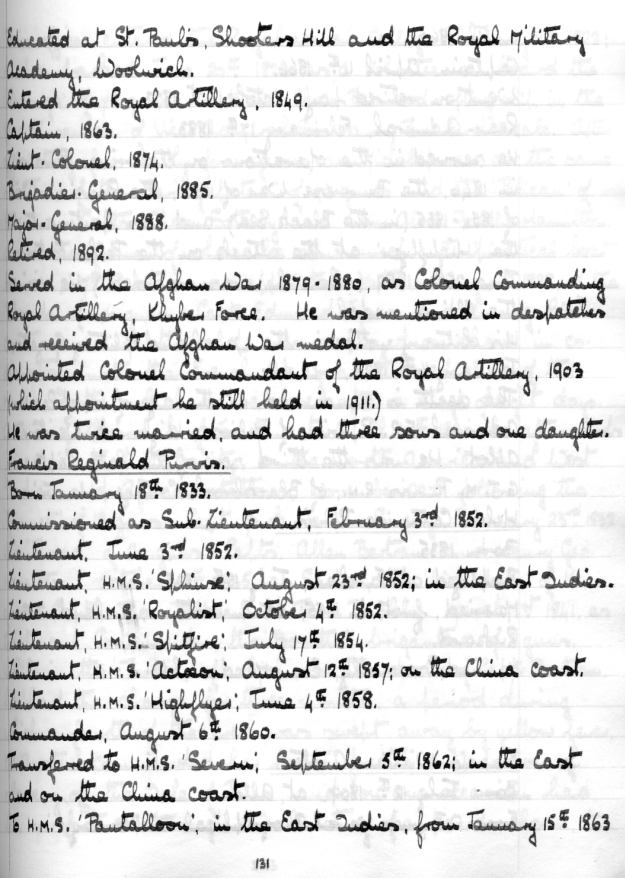 Educated at St. Paul's, Shooters Hill and the Royal Military
Academy, Woolwich.
Entered the Royal Artillery, 1849.
Captain, 1863.
Lieut. Colonel, 1874.
Brigadier-General, 1885.
Major-General, 1888.
Retired, 1892.
Served in the Afghan War 1879-1880, as Colonel Commanding
Royal Artillery, Khyber Force. He was mentioned in despatches
and received the Afghan War medal.
Appointed Colonel Commandant of the Royal Artillery, 1903
(which appointment he still held in 1911.)
He was twice married, and had three sons and one daughter.
Francis Reginald Purvis.
Born January 18th 1833.
Commissioned as Sub-Lieutenant, February 3rd 1852.
Lieutenant, June 3rd 1852.
Lieutenant, H.M.S. 'Sphinx', August 23rd 1852; in the East Indies.
Lieutenant, H.M.S. 'Royalist', October 4th 1852.
Lieutenant, H.M.S. 'Spitfire', July 17th 1854.
Lieutenant, H.M.S. 'Actaeon', August 12th 1857; on the China coast.
Lieutenant, H.M.S. 'Highflyer', June 4th 1858.
Commander, August 6th 1860.
Transferred to H.M.S. 'Severn', September 5th 1862; in the East
and on the China coast.
To H.M.S. 'Pantaloon', in the East Indies, from January 15th 1863
131